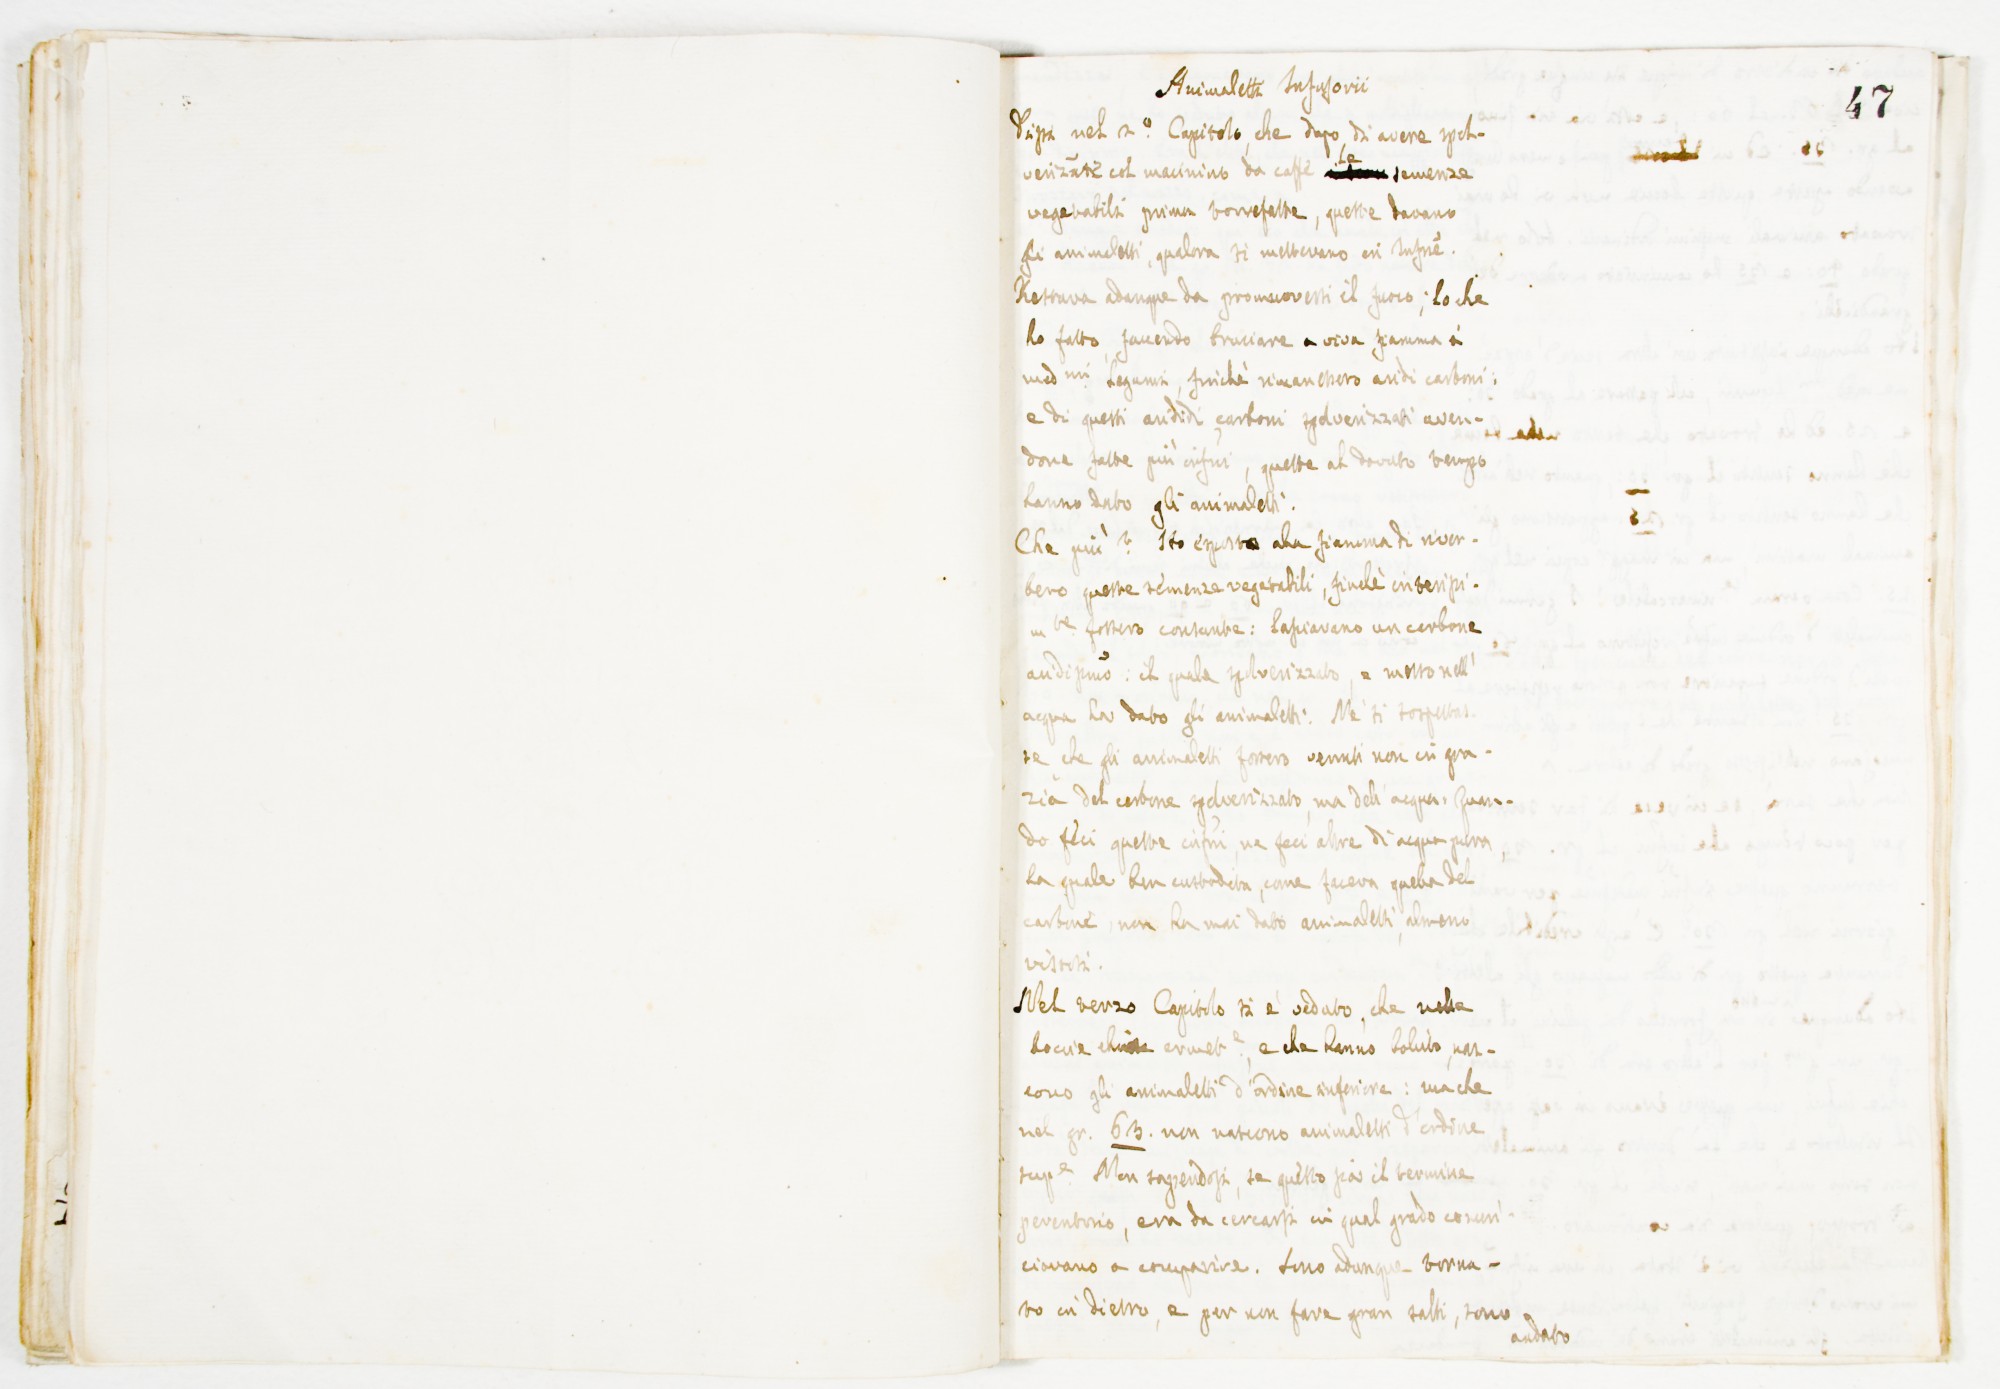 Animaletti Infusorii
47
Dissi nel 2º. Capitolo, che dopo di avere spol-
verizzate col macinino da caffè le semenze
vegetabili prima torrefatte, queste davano
gli animaletti, qualora si mettevano in Infusⁿⁱ.
Restava adunque da promuoversi il fuoco; lo che
ho fatto, facendo bruciare a viva fiamma i
med.ᵐⁱ Legumi, finchè rimanessero aridi carboni:
e di questi aridi carboni spolverizzati aven-
done fatte più infusⁿⁱ, queste al dovuto tempo
hanno dato gli animaletti.
Che più? Ho esposte alla fiamma di river-
bero queste semenze vegetabili, finchè interissi-
mᵗᵉ. fossero consunte: lasciavano un carbone
aridissimo: il quale spolverizzato, e messo nell'
acqua ha dato gli animaletti. Nè si sospettas-
se che gli animaletti fossero venuti non in gra-
zia del carbone spolverizzato, ma dell'acqua. Quan-
do feci queste infusⁿⁱ, ne feci altre di acqua pura
la quale ben custodita, come faceva quella del
carbone, non ha mai dato animaletti, almeno
vistosi.
Nel terzo Capitolo si è veduto, che nelle
boccie chiuse ermetᵉ., e che hanno bolito, nas-
cono gli animaletti d'ordine inferiore: ma che
nel gr. 63. non nascono animaletti d'ordine
supᵉ. Non sapendosi, se questo sia il termine
perentorio, era da cercarsi in qual grado comin-
ciavano a comparire. Sono adunque torna-
to in dietro, e per non fare gran salti, sono
andato